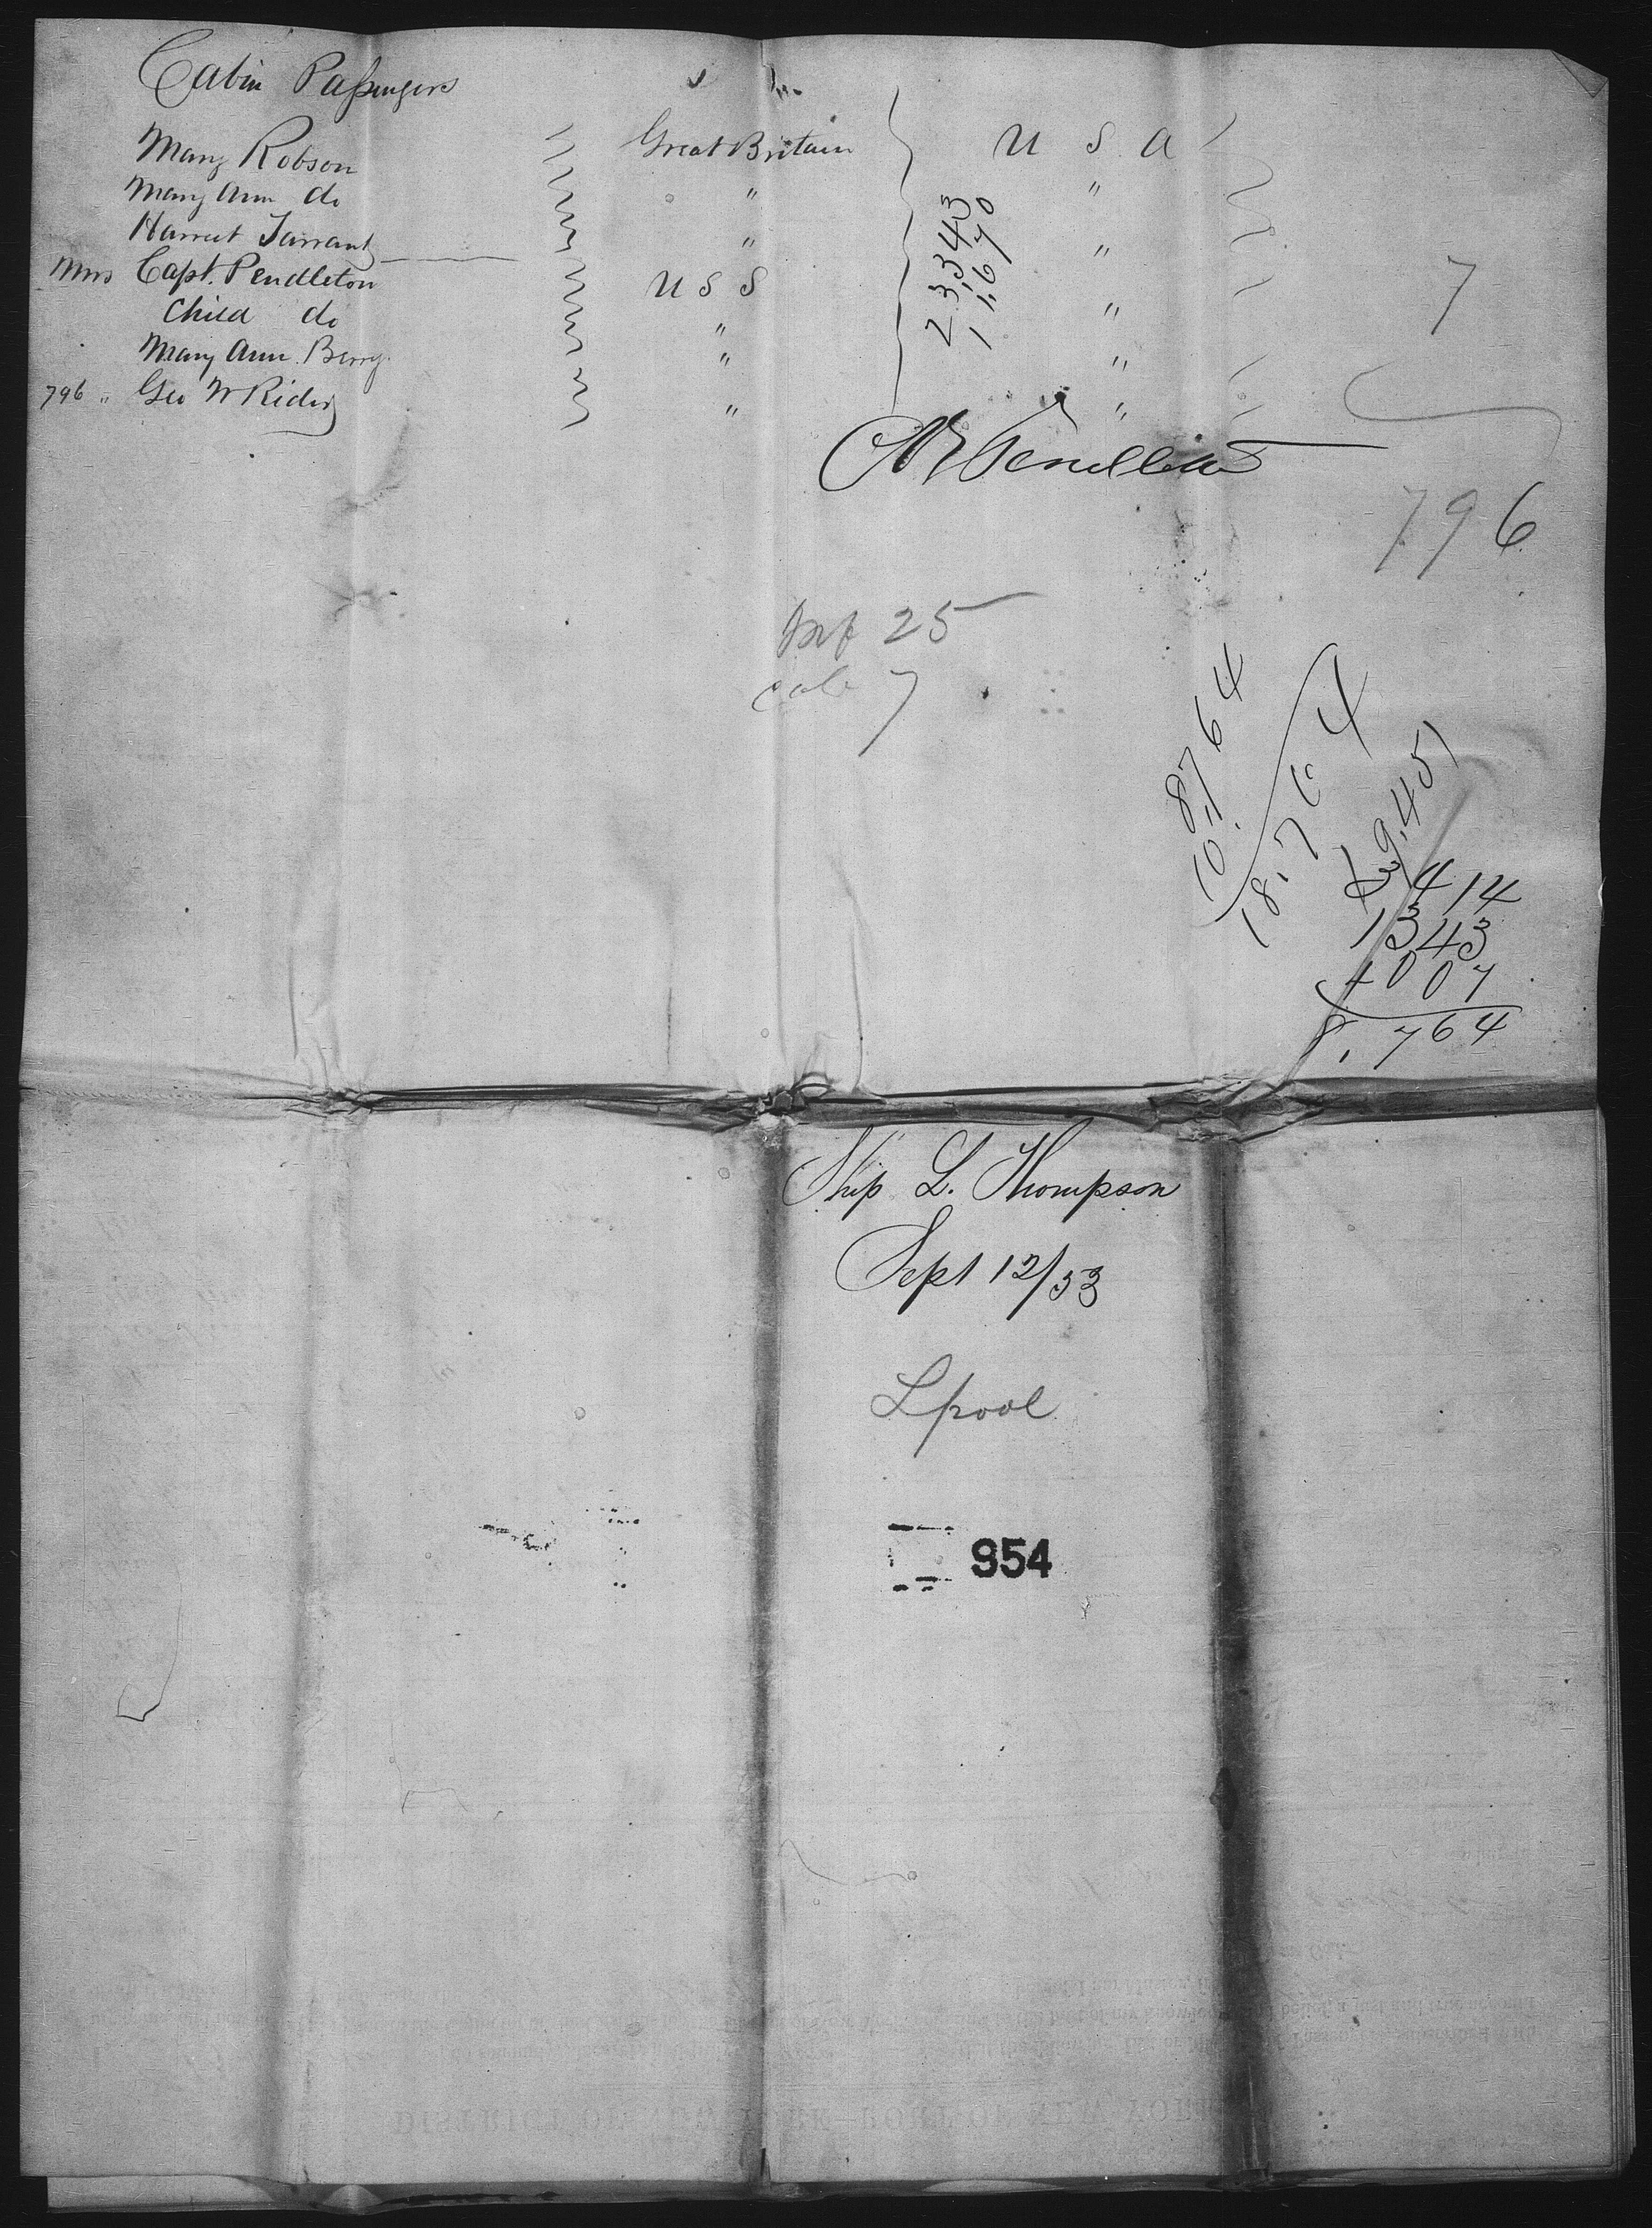 Cabin Passengers
Mary Robson Great Britain U S A
Mary Ann do " "
Harriet Tarrant " "
Mrs Capt. Pendleton U S S "
Child do " "
Mary Ann Berry " "
796 " Geo W Rider " "
23,343
11,670
7
Pendleton
796
Inf 25
cab 7
8764
10,
18,764
9,45
414
1343
4007
8,764
Ship L. Thompson
Sept 12/53
Lpool
954